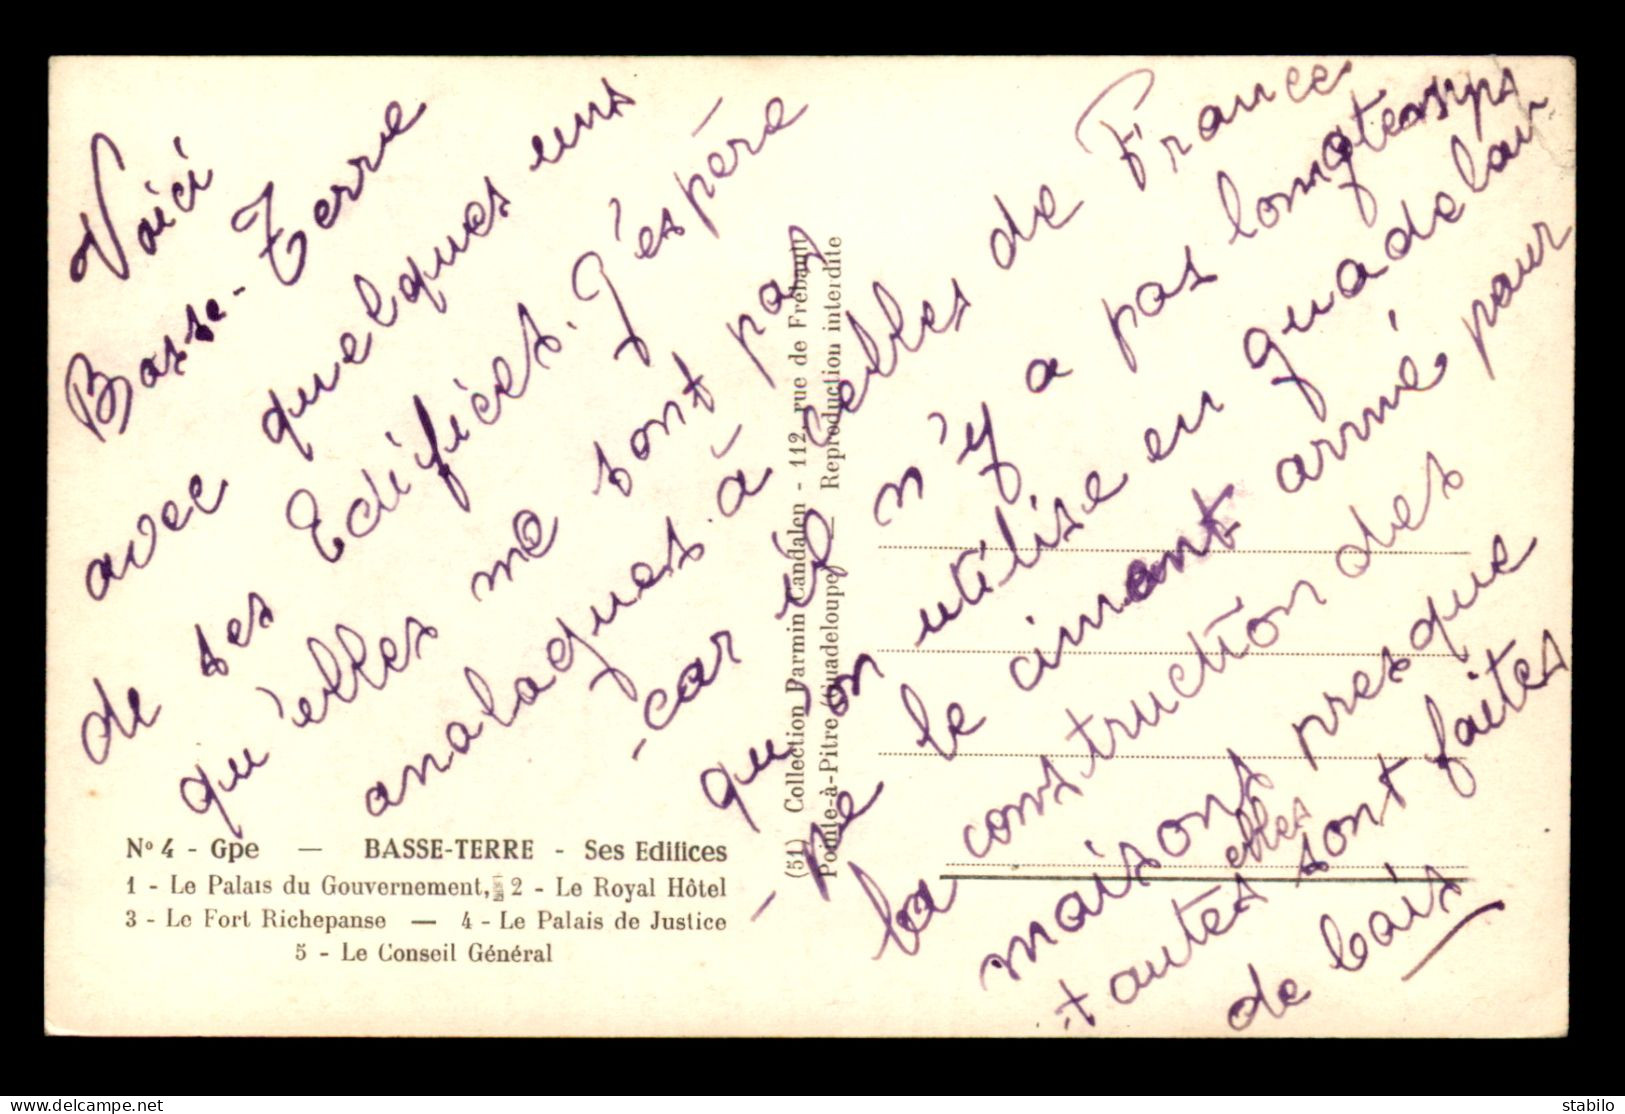 Voici
Basse-Terre
avec quelques uns
de ses Edifices. J'espère
qu'elles me sont pas
analogues à celles de France
-car il n'y a pas longtemps
qu'on utilise en guadelou-
-pe le ciment armé pour
la construction des
maisons presque
toutes elles sont faites
de bois
Nº 4 - Gpe — BASSE-TERRE - Ses Edifices
1 - Le Palais du Gouvernement, 2 - Le Royal Hôtel
3 - Le Fort Richepanse — 4 - Le Palais de Justice
5 - Le Conseil Général
(51) Collection Parmin Candalen - 112, rue de Frébault
Pointe-à-Pitre (Guadeloupe) _ Reproduction interdite
stabilo
www.delcampe.net